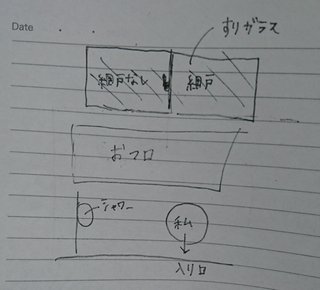 Date
すりガラス
網戸なし
網戸
おフロ
シャワー
私
入り口